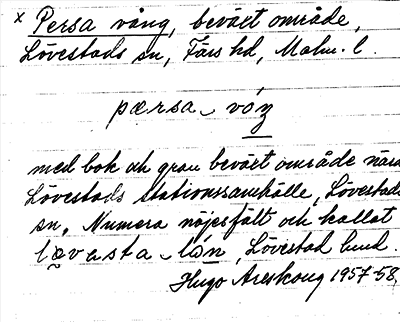 x Persa vång, beväxt område,
Lövestads sn, Färs hd, Malm. l.
pærsa - vóŋ
med bok och gran beväxt område nära
Lövestads stationssamhälle, Lövestads
sn. Numera nöjesfält och kallat
lövesta - lón, Lövestad lund.
Hugo Areskoug 1957-58,